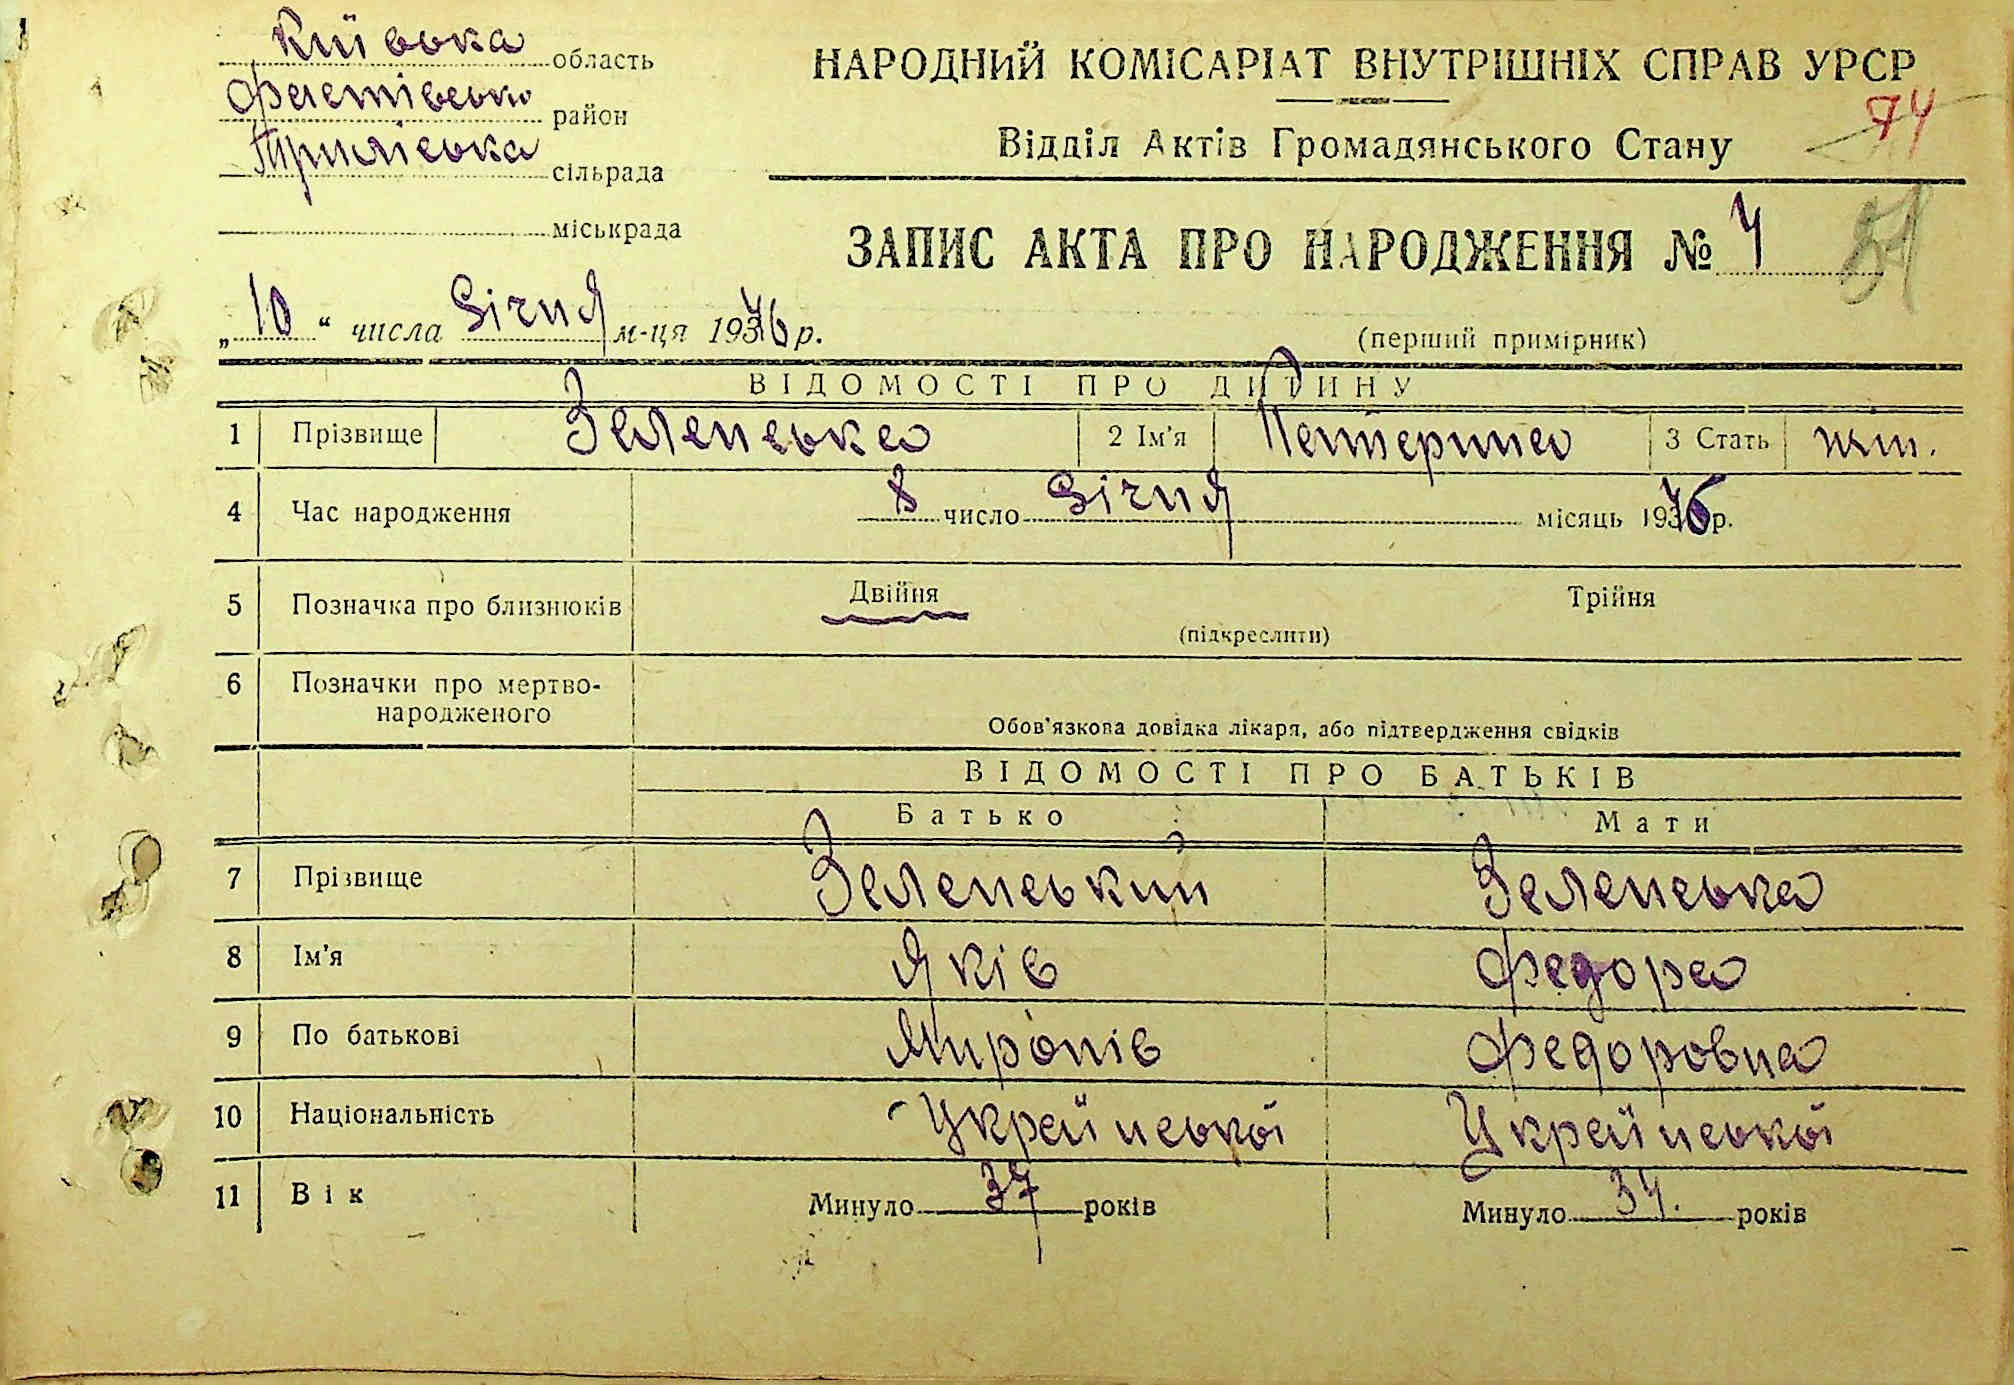 Київська область
Фастівський район
сільрада
міськрада
НАРОДНИЙ КОМІСАРІАТ ВНУТРІШНІХ СПРАВ УРСР
74
Відділ Актів Громадянського Стану
ЗАПИС АКТА ПРО НАРОДЖЕННЯ № 4
„10“ числа Січня м-ця 1936 р.
(перший примірник)
ВІДОМОСТІ ПРО ДИТИНУ
1 Прізвище Зеленська 2 Ім'я Катерина 3 Стать жін.
4 Час народження 8 число Січня місяць 1936 р.
5 Позначка про близнюків Двійня Трійня
(підкреслити)
6 Позначки про мертво-
народженого
Обов'язкова довідка лікаря, або підтвердження свідків
ВІДОМОСТІ ПРО БАТЬКІВ
Батько Мати
7 Прізвище Зеленський Зеленська
8 Ім'я Яків Федора
9 По батькові Миронів Федоровна
10 Національність Української Української
11 Вік Минуло 37 років Минуло 34. років